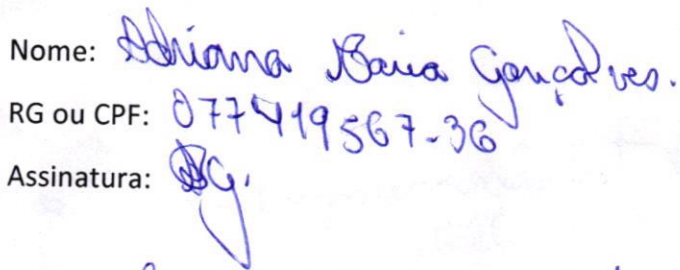 Nome: Adriana Maria Gonçalves.
RG ou CPF: 077419567-36
Assinatura: AG.